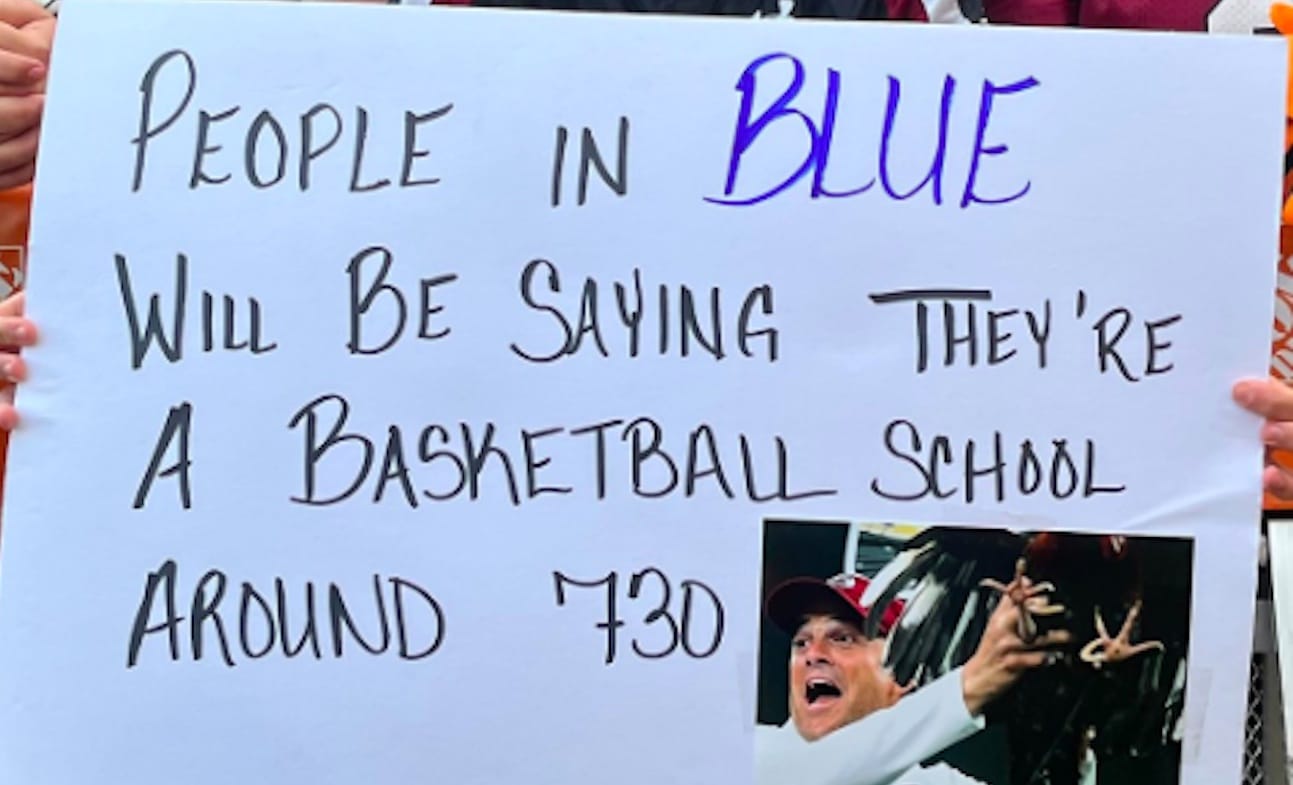 PEOPLE IN BLUE
WILL BE SAYING THEY'RE
A BASKETBALL SCHOOL
AROUND 730